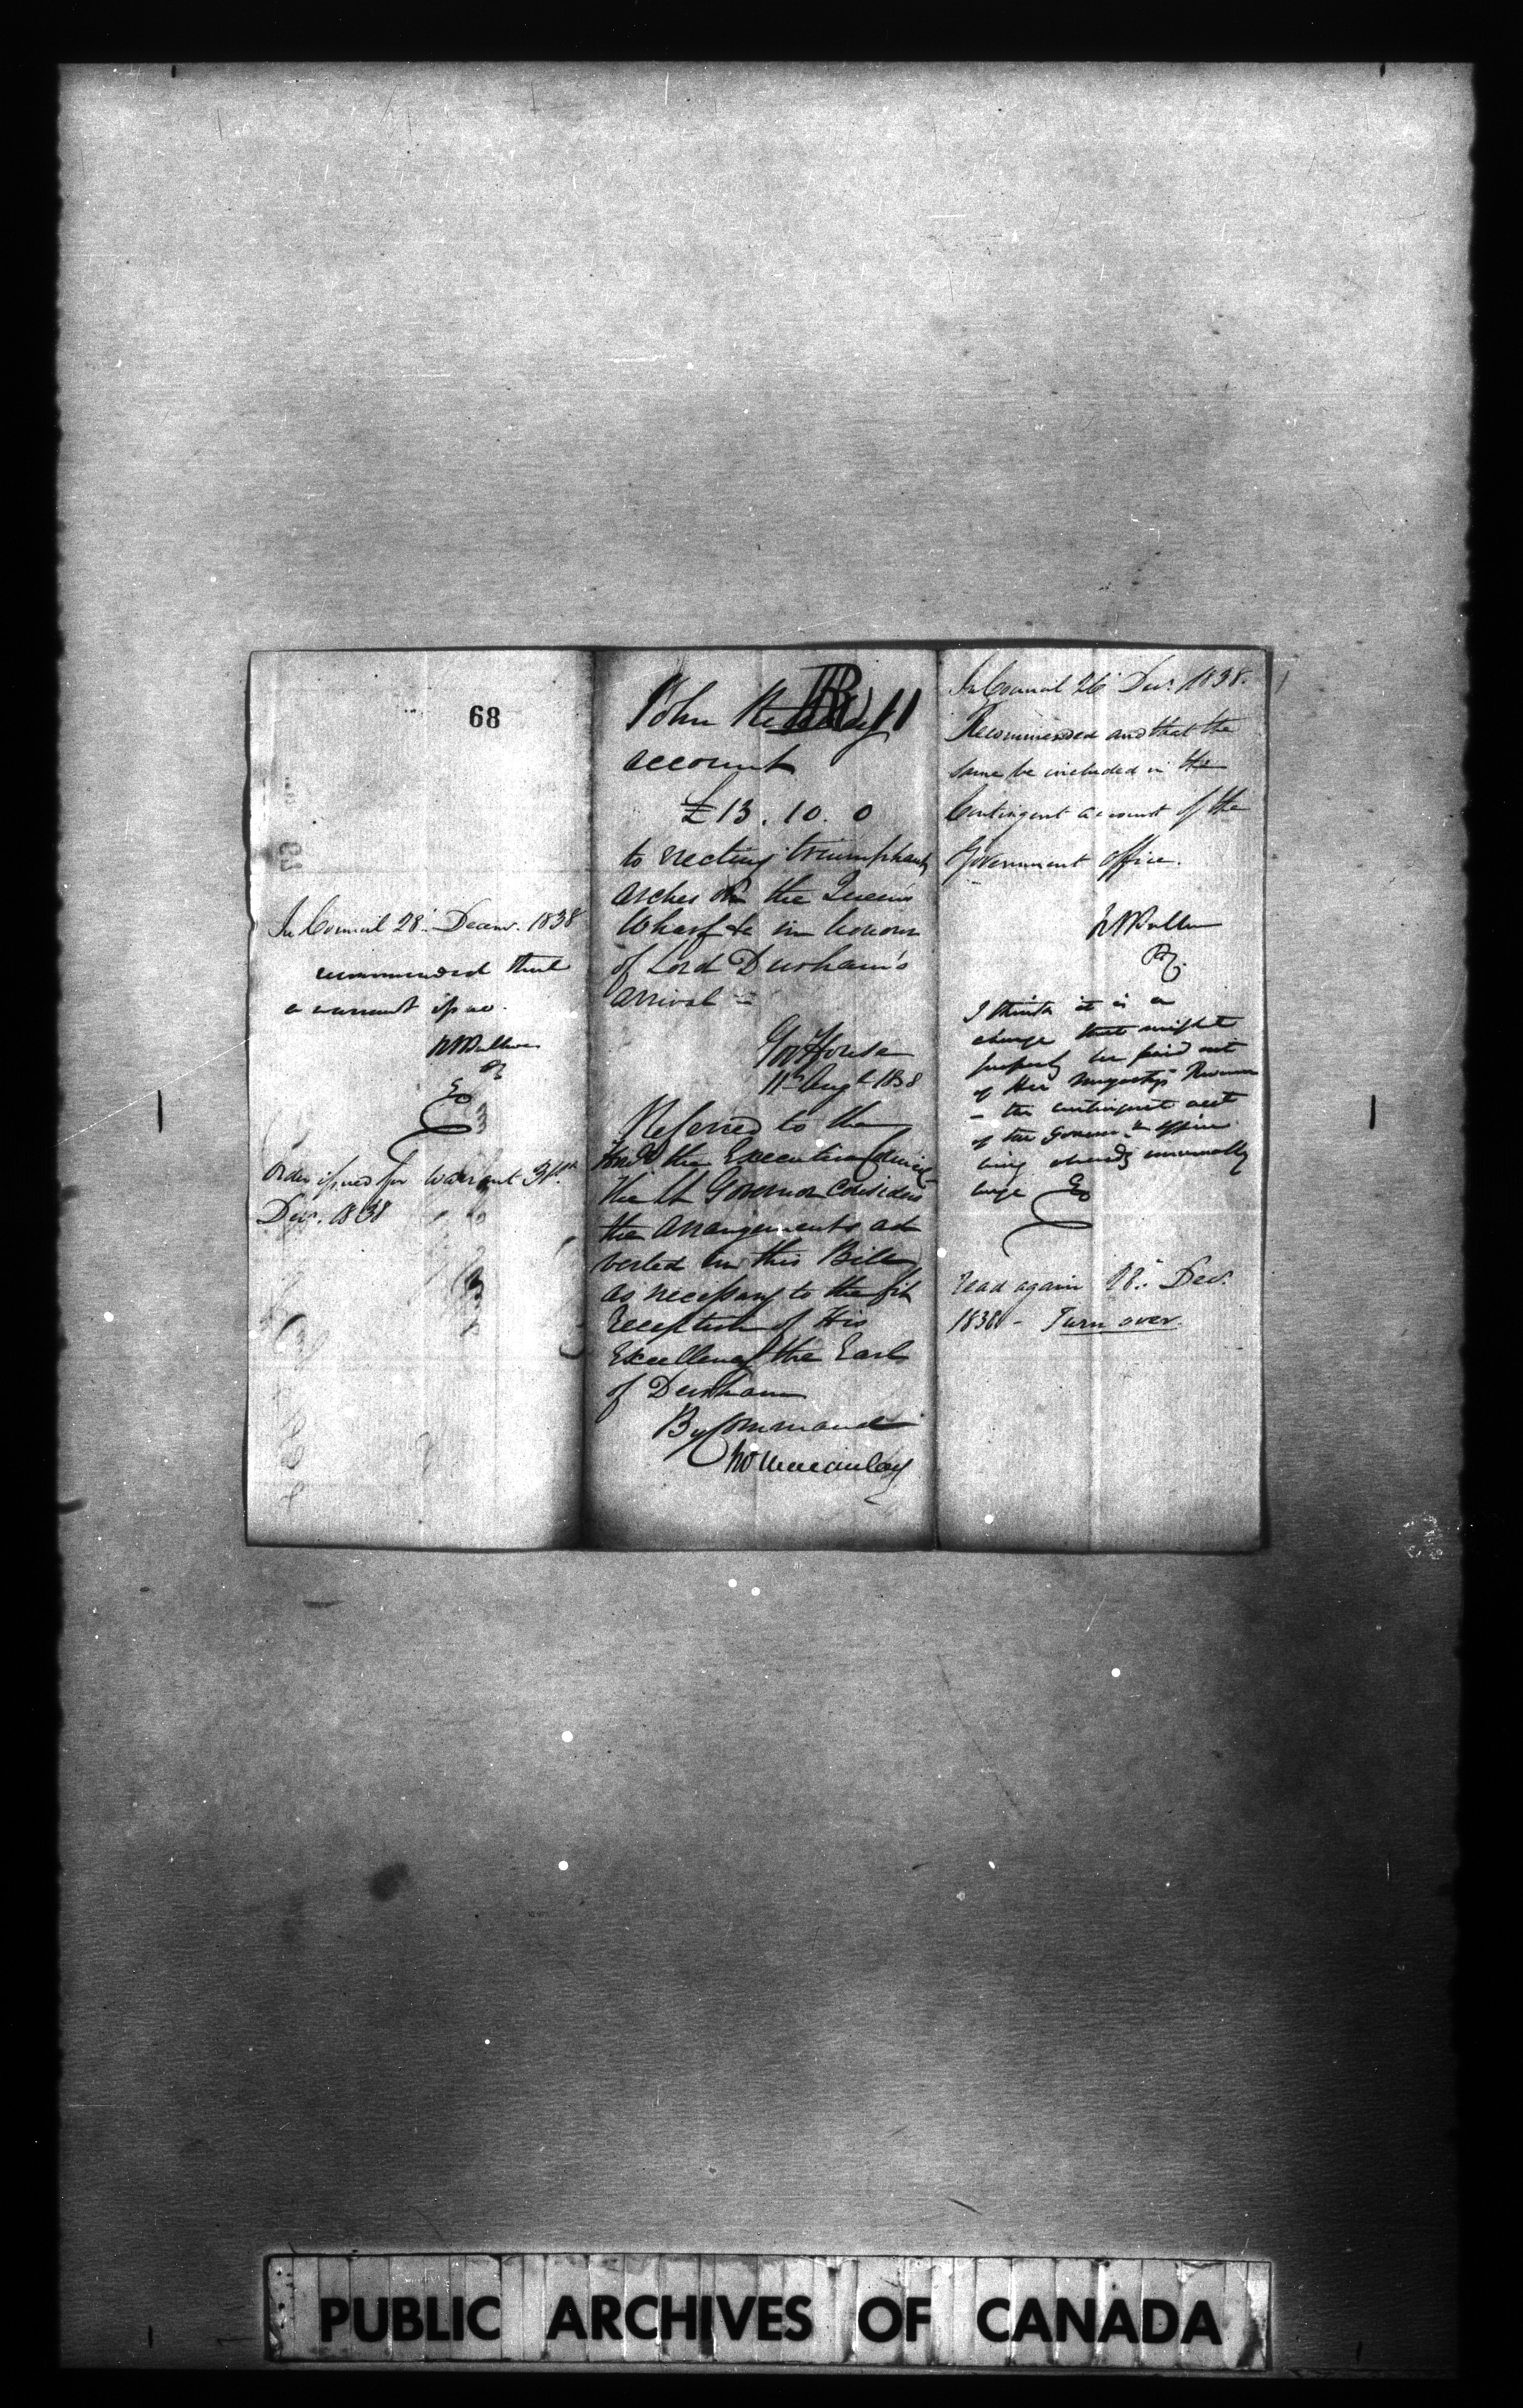 68
In Council 28th Decemr. 1838
recommended that
a warrant issue.
RBSullivan
PC
Order issued for warrant 31st
Decr. 1838
B 11
John
account
£13. 10. 0
to erecting triumphant
arches on the Queen's
Wharf &c in honour
of Lord Durham's
arrival
Govt House
11th Augt 1838
Referred to the
Honble the Executive Council
The Lt Governor considers
the arrangements ad
verted in this Bill
as necessary to the fit
reception of His
Excellency the Earl
of Durham
By Command
Jno Macaulay
In Council 26 Decr. 1838.
Recommended and that the
same be included in the
Contingent account of the
Government Office.
RBSullivan
PC
I think it is a
charge that might
properly be paid out
of Her Majesty's Revenue
- the contingent acct
of the Governor's office
being already unusually
large
read again 28th Decr.
1838 - Turn over.
PUBLIC ARCHIVES OF CANADA